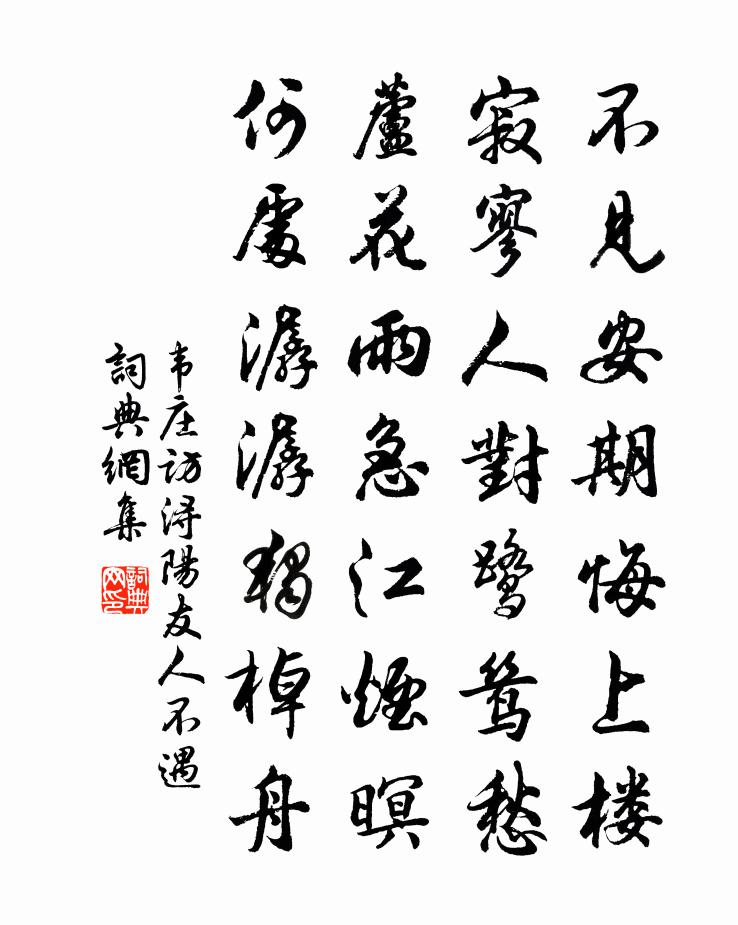 不見安期悔上楼
寂寥人對鷺鸶愁
蘆花雨急江煙暝
何處潺潺獨棹舟
韦庄访浔陽友人不遇
詞典網集
詞典网印